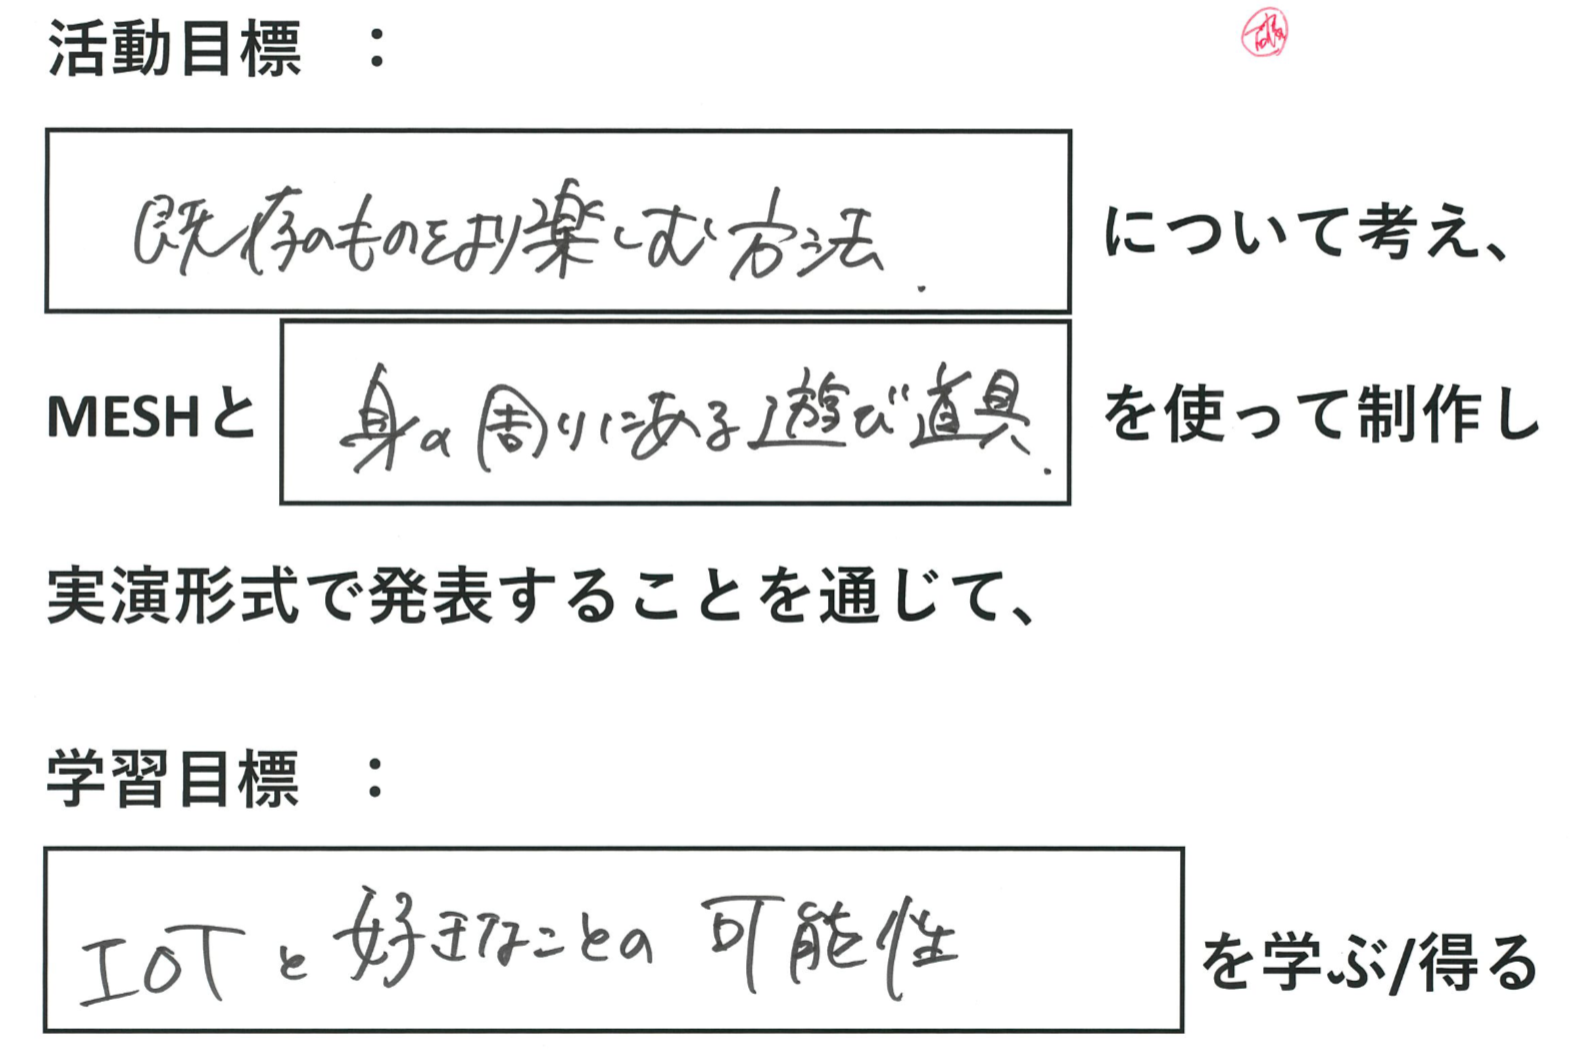 活動目標 :
既存のものをより楽しむ方法. について考え、
MESHと 身の周りにある遊び道具. を使って制作し
実演形式で発表することを通じて、
学習目標 :
IOTと好きなことの可能性 を学ぶ/得る